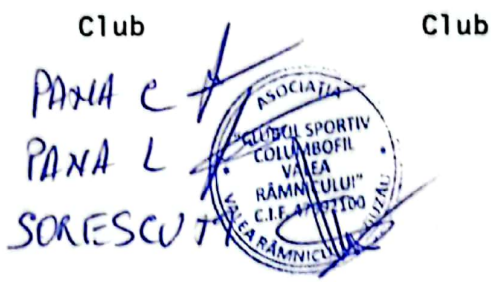 Club Club
PANA C
PANA L
SORESCU
ASOCIAȚIA
"CLUBUL SPORTIV
COLUMBOFIL
VALEA
RÂMNICULUI"
C.I.F.
VALEA RÂMNICULUI BUZĂU